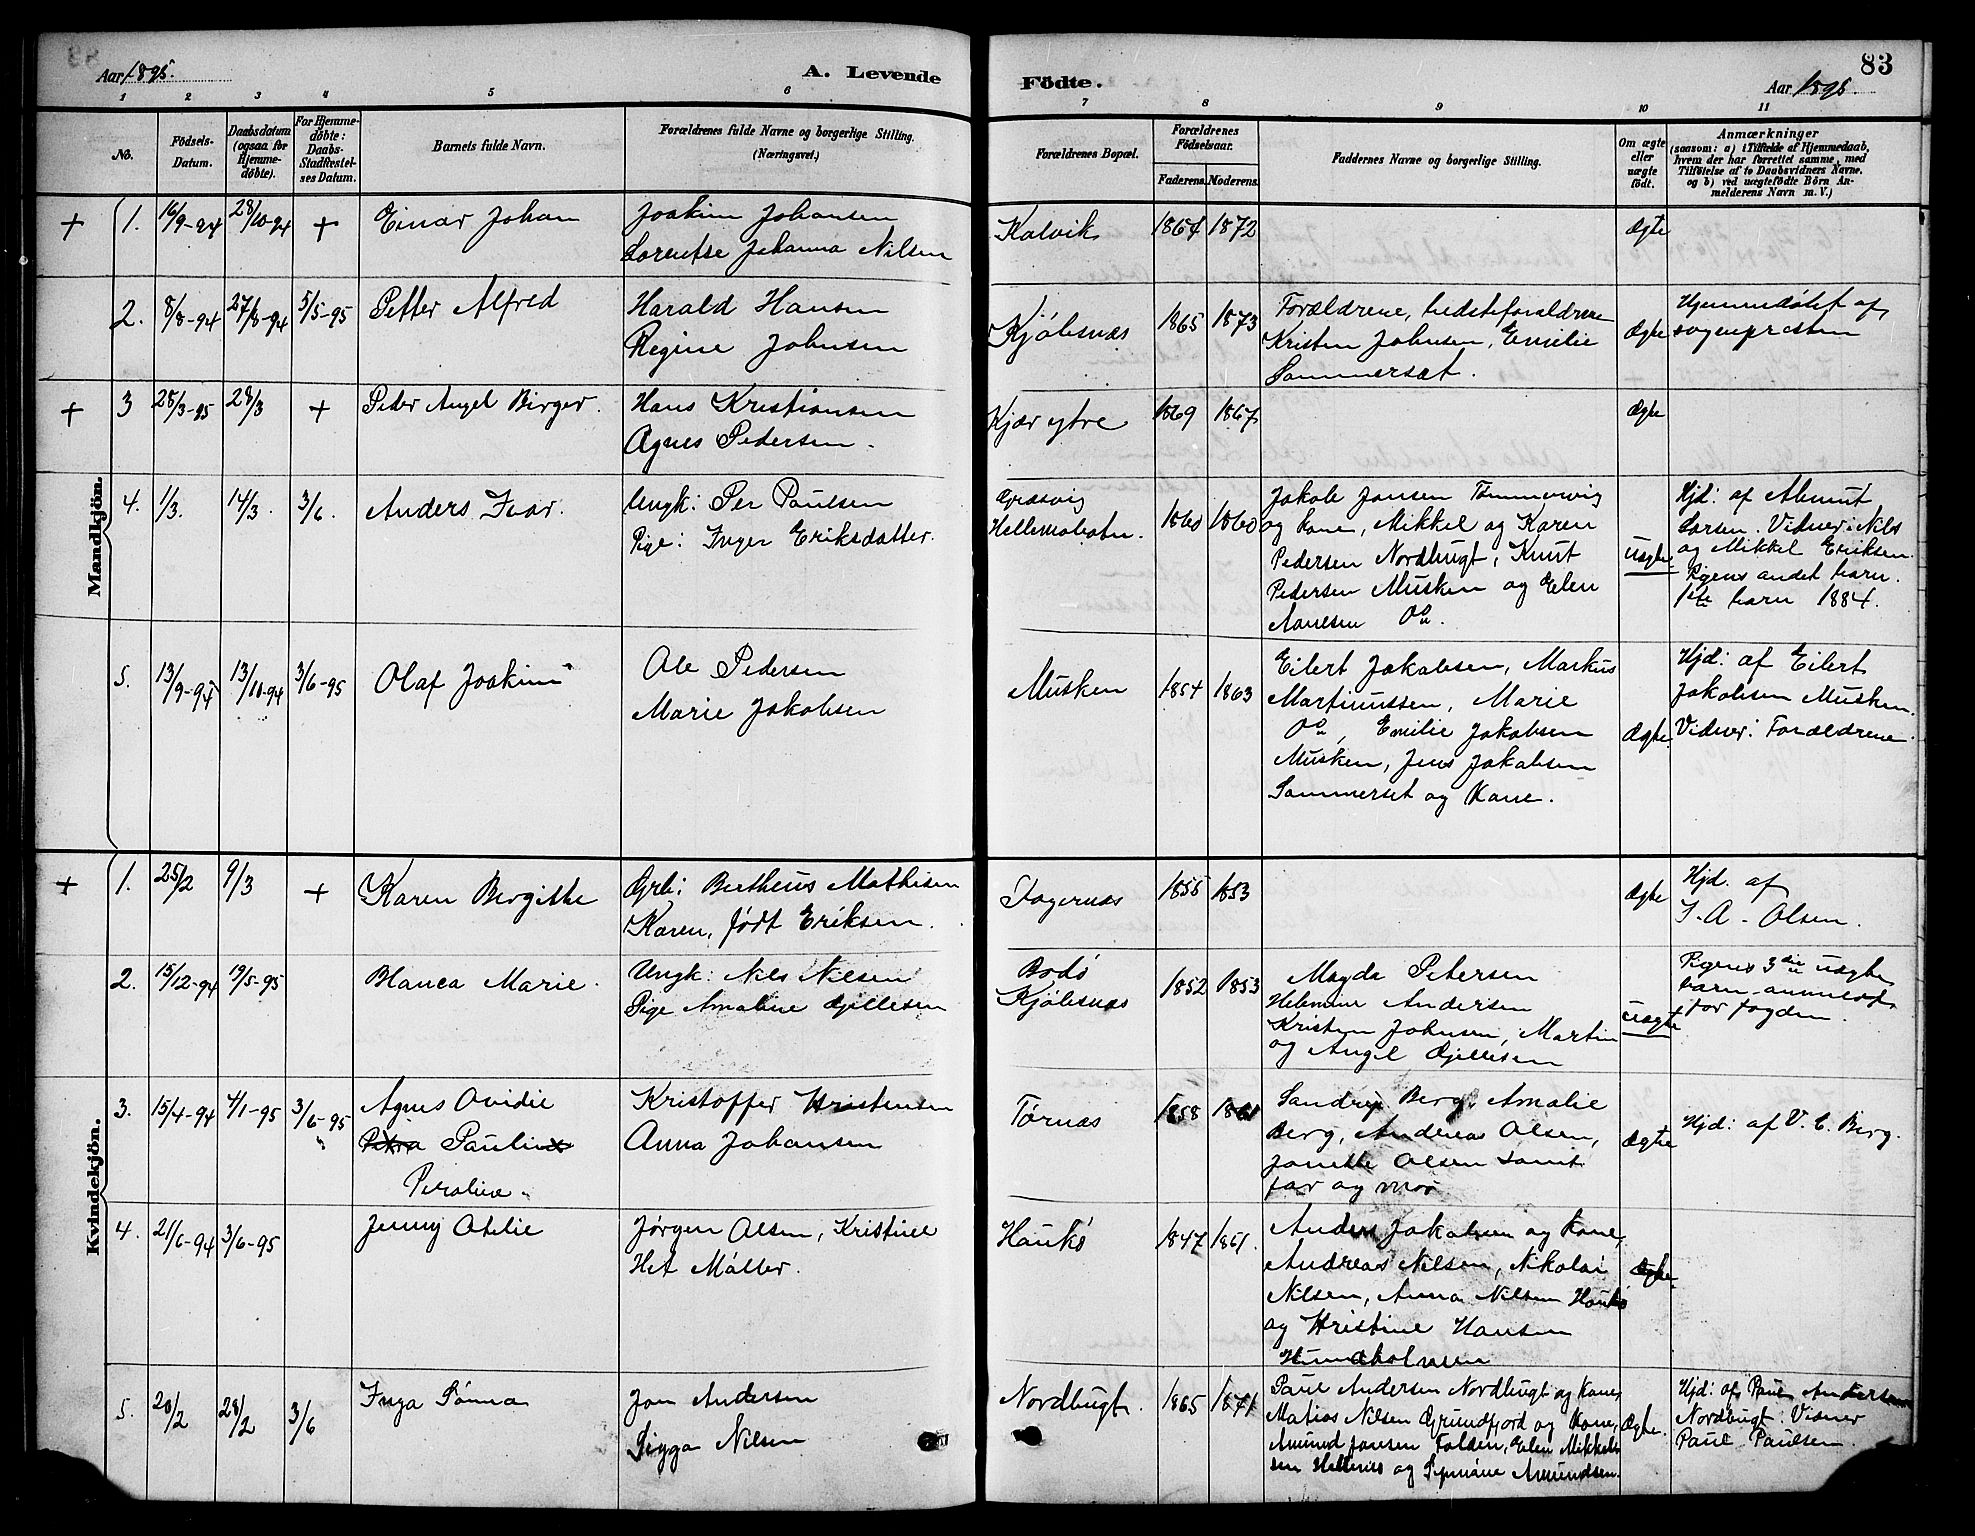 Aar 1895.
A. Levende
1 2 3 4 5 6
No.
Födsels-Datum.
Daabsdatum (ogsaa for Hjemmedöbte).
For Hjemmedöbte: Daabs-Stadfæstelses Datum.
Barnets fulde Navn.
Forældrenes fulde Navne og borgerlige Stilling. (Næringsvei.)
Mandkjön.
+ 1. 16/9-94 28/10-94 + Einar Johan Joakim Johansen
Lorentse Johanna Nilsen
2. 8/8-94 27/8-94 5/5-95 Petter Alfred Harald Hansen
Regine Johnsen
+ 3 28/3-95 28/3 + Peder Angel Birger. Hans Kristiansen
Agnes Pedersen.
4. 1/3. 14/3. 3/6. Anders Ivar. Ungk: Per Paulsen
Pige: Inger Eriksdatter.
5. 13/9-94 13/10-94 3/6-95 Olaf Joakim Ole Pedersen
Marie Jakobsen
Kvindekjön.
+ 1. 25/2 9/3 + Karen Bergitte Grb: Bertheus Mathisen
Karen, født Eriksen.
2. 15/12-94 19/5-95 Blanca Marie. Ungk: Nils Nilsen
Pige Amaline Gjellesen
3. 15/4-94 4/1-95 3/6-95 Agnes Ovidie Kristoffer Kristensen
Petra Pauline Anna Johansen
Peroline.
4. 21/6-94 3/6-95 Jenny Otelie Jørgen Olsen, Kristine
Het Møller.
5. 20/2 28/2 3/6 Inga Sanna Jon Andersen
Sigga Nilsen
83
Födte.
Aar 1895.
7 8 9 10 11
Forældrenes Bopæl.
Forældrenes Födselsaar.
Faderens. Moderens.
Faddernes Navne og borgerlige Stilling.
Om ægte eller uægte födt.
Anmærkninger
(saasom: a) i Tilfælde af Hjemmedaab,
hvem der har forrettet samme, med
Tilföielse af to Daabsvidners Navne.
og b) ved uægtefödte Börn Anmelderens Navn m. V.)
Kalvik 1864 1872 Ægte
Kjøbsnæs 1865 1873 Forældrene, bedsteforældrene
Kristen Johnsen, Emilie
Sommersæt.
Ægte Hjemmedøbt af
sognepresten
Kjær ytre 1869 1867 Ægte
Græsvig
Hellemobotn. 1860 1860 Jakob Jansen Tømmervig
og kone, Mikkel og Karen
Pedersen Nordbugt, Knut
Pedersen Musken og Elen
Uægte Hjd: af Almut
Larsen. Vidner: Nils
og Mikkel Eriksen.
Pigens andet barn.
1ste barn 1884.
Musken 1854 1863 Eilert Jakobsen, Markus
Martinussen, Marie
Emilie Jakobsen
Musken, Jens Jakobsen
Sommerset og Kone.
Ægte. Hjd: af Eilert
Jakobsen Musken.
Vidner: Forældrene.
Fagernæs 1855 1853 Ægte Hjd. af
J. A. Olsen.
Bodø
Kjøbsnæs 1852 1853 Magda Petersen
Helmine Andersen
Kristen Johnsen, Martin
og Angel Gjellesen
Uægte Pigens 3die uægte
barn anmeldt
for fogden.
Tørnæs 1858 1861 Sandrup Berg, Amalie
Berg, Andreas Olsen,
Janette Olsen samt
far og mor
Ægte Hjd: af V. C. Berg.
Haukø 1847 1861. Anders Jakobsen og Kone,
Andreas Nilsen, Nikolai
Nilsen, Anna Nilsen Haukø
og Kristine Hansen
Hundholmen
Ægte.
Nordbugt. 1865 1871 Paul Andersen Nordbugt og Kone,
Matias Nilsen Grundfjord og Kone,
Amund Jansen Folden, Elen Mikkelsen
Ægte. Hjd: af Paul Andersen
Nordbugt. Vidner
Paul Paulsen.